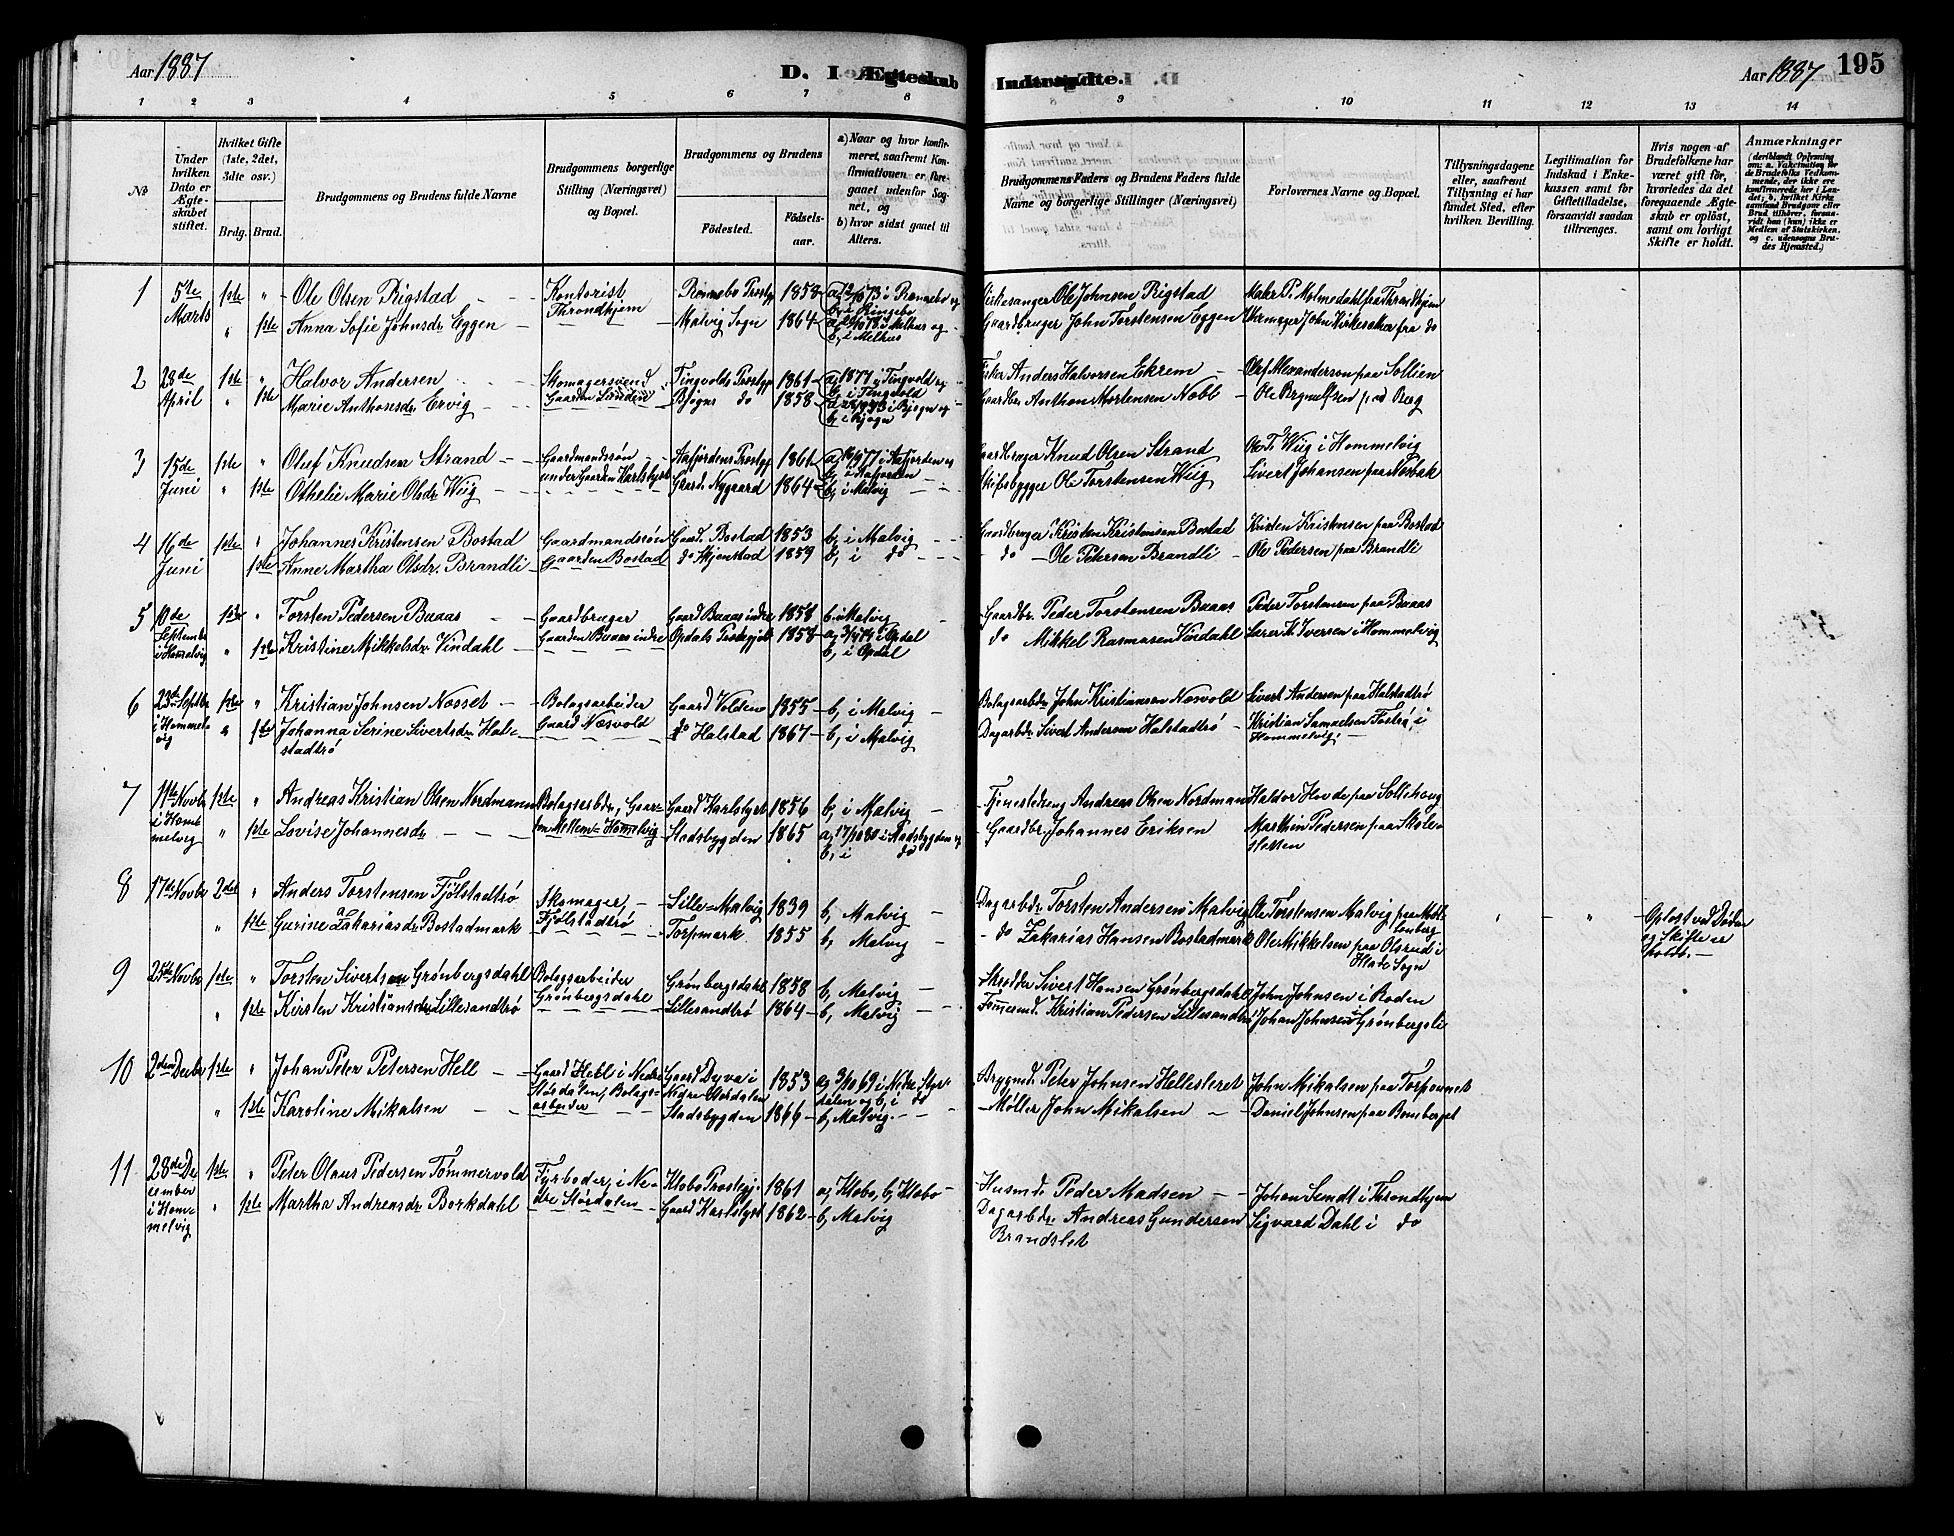 Aar 1887
D. I Ægteskab Indtraadte.
Aar 1887
195
1 2 3 4 5 6 7 8 9 10 11 12 13 14
No
Under hvilken Dato er Ægteskabet stiftet.
Hvilket Gifte (1ste, 2det, 3die osv.)
Brdg. Brud.
Brudgommens og Brudens fulde Navne
Brudgommens borgerlige Stilling (Næringsvei) og Bopæl.
Brudgommens og Brudens
Födested.
Födsels-aar.
a) Naar og hvor konfirmeret, saafremt Konfirmationen er foregaaet udenfor Sognet, og
b) hvor sidst gaaet til Alters.
Brudgommens Faders og Brudens Faders fulde Navne og borgerlige Stillinger (Næringsvei)
Forlovernes Navne og Bopæl.
Tillysningsdagene eller, saafremt Tillysning ei har fundet Sted, efter hvilken Bevilling.
Legitimation for Indskud i Enkekassen samt for Giftetilladelse, forsaavidt saadan tiltrænges.
Hvis nogen af Brudefolkene har været gift för, hvorledes da det foregaaende Ægteskab er oplöst, samt om lovligt Skifte er holdt.
Anmærkninger
(deriblandt Oplysning om: a. Vakcination for de Brudefolks Vedkommende, der ikke ere konfirmerede her i Landet; b. hvilket Kirkesamfund Brudgom eller Brud tilhörer, forsaavidt han (hun) ikke er Medlem af Statskirken, og c. udensogns Brudes Hjemsted.)
1 5te Marts 1ste " Ole Olsen Rigstad Kontorist Throndhjem Rennebo Prstgj 1858 Kirkesanger Ole Johnsen Rigstad Maler P. Molmedahl fra Throndhjem
" 1ste Anna Sofie Johnsdr. Eggen Malvig Sogn 1864 b, i Melhus Gaardbruger John Torstensen Eggen
2 28de April 1ste " Halvor Andersen Skomagersvend Tingvolds Prstgj 1861 a, 1877 i Tingvold og b, i Tingvold Fisker Anders Halvorsen Ekrem Olaf Alexandersen paa Sollien
" 1ste Marie Anthonsdr. Ervig Bjøgns do 1858 b, i Bjøgn Gaardbr. Anthon Mortensen Nobb
3 15de Juni 1ste " Oluf Knudsen Strand Gaardmandssøn under Gaarden Karlslyst Aafjordens Prstgj. 1861 i Aafjorden og Gaardbruger Knud Olsen Strand Ole T. Wiig i Hommelvig
" 1ste Othelie Marie Olsdr. Wiig Gaard. Nygaard 1864 b, i Malvig Skibsbygger Ole Torstensen Wiig Sivert Johansen paa Nosbak
4 16de Juni 1ste " Johannes Kristensen Bostad Gaardmandssøn Gaarden Bostad Gaard. Bostad 1853 b, i Malvig Gaardbruger Kristen Kristensen Bostad Kristen Kristensen paa Bostad
1ste Anne Martha Olsdr. Brandli do Hjønstad 1859 b, i do do Ole Petersen Brandli Ole Pedersen paa Brandli
5 10de September i Hommelvig 1ste " Torsten Pedersen Baaas Gaardbruger Gaarden Baaas indre Gaard Baaas indre 1858 b, i Malvig Gaardbr. Peder Torstensen Baaas Peder Torstensen paa Baaas
" 1ste Kristine Mikkelsdr. Vindahl Opdals Prstegjeld 1858 i Opdal b, i Opdal do Mikkel Rasmusen Vindahl Lars K. Iversen i Hommelvig
6 23de Septbr i Hommelvig 1ste " Kristian Johnsen Nosset Bolagsarbeider Gaard Næsvold Gaard Volden 1855 b, i Malvig Bolagsarbdr. John Kristiansen Næsvold Sivert Andersen paa Halstadtrø
" 1ste Johanna Serine Sivertsdr. Halstadtrø do Halstad 1867 b, i Malvig Dagarbdr. Sivert Andersen Halstadtrø Kristian Samuelsen i Hommelvig.
7 11te Novbr i Hommelvig 1ste " Andreas Kristian Olsen Nordmann Bolagsarbdr, Gaarden Mellem=Hommelvig Gaard Karlslyst 1856 b, i Malvig Tjenestedreng Andreas Olsen Nordman Haldor Hovde paa Sollihaug
" 1ste Lovise Johannesdr. Stadsbygden 1865 a, 17/10 80 i Stadsbygden og b, i do Gaardbr. Johannes Eriksen Marthin Pedersen paa Skolesletten
8 17de Novbr 2det " Anders Torstensen Fjølstadtrø Skomager, Fjølstadtrø Lille=Malvig 1839 b, Malvig Dagarbdr. Torsten Andersen Malvig Ole Torstensen Malvig paa " Opløst ved Døden og Skifte er holdt.
" 1ste Gurine Zakariasdr. Bostadmark Torpmark 1855 b, Malvig do Zakarias Hansen Bostadmark Ole Mikkelsen paa Olsrud i Hlade Sogn
9 25de Novbr 1ste " Torsten Sivertsen Grønbergsdahl Bolagsarbeider Grønbergsdahl Grønbergsdahl 1858 b, Malvig Skrædder Sivert Hansen Grønbergsdahl John Johnsen i Roden
" 1ste Kirsten Kristiansdr. Lillesandtrø Lillesandtrø 1864 b, Malvig Tømmermd. Kristian Pedersen Lillesandtrø Johan Johnsen i Grønbergsli
10 2den Decbr 1ste " Johan Peter Petersen Hell Gaard Hell i Nedre Størdalen, Bolagsarbeider Gaard Dyva i Nedre Størdalen 1853 a, 3/10 69 i Nedre Størdalen og b, i do Brygmd. Peter Johnsen Hellesleret John Mikalsen paa
" 1ste Karoline Mikalsen Stadsbygden 1866 b, Malvig. Møller John Mikalsen Daniel Johnsen paa
11 28de December i Hommelvig 1ste " Peter Olaus Pedersen Tømmervold Fyrbøder, i Nedre Størdalen Klæbo Prstegj. 1861 a, Klæbo, b, Klæbo Husmd. Peder Madsen Johan Lundt i Throndhjem
" 1ste Martha Andreasdr. Borkdahl Gaard Karlslyst 1862 b, Malvig Dagarbdr. Andreas Gundersen Brandslet Sigvard Dahl i do